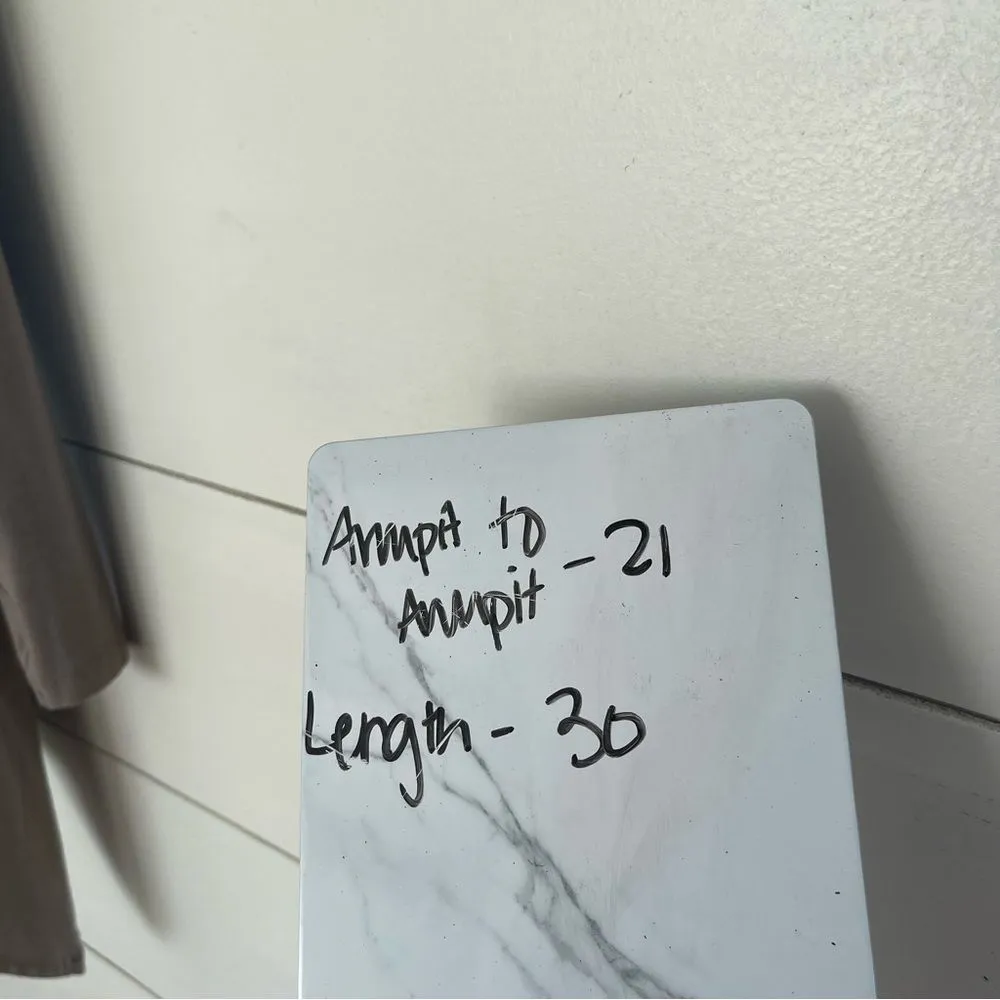 Armpit to - 21
Armpit
Length - 30